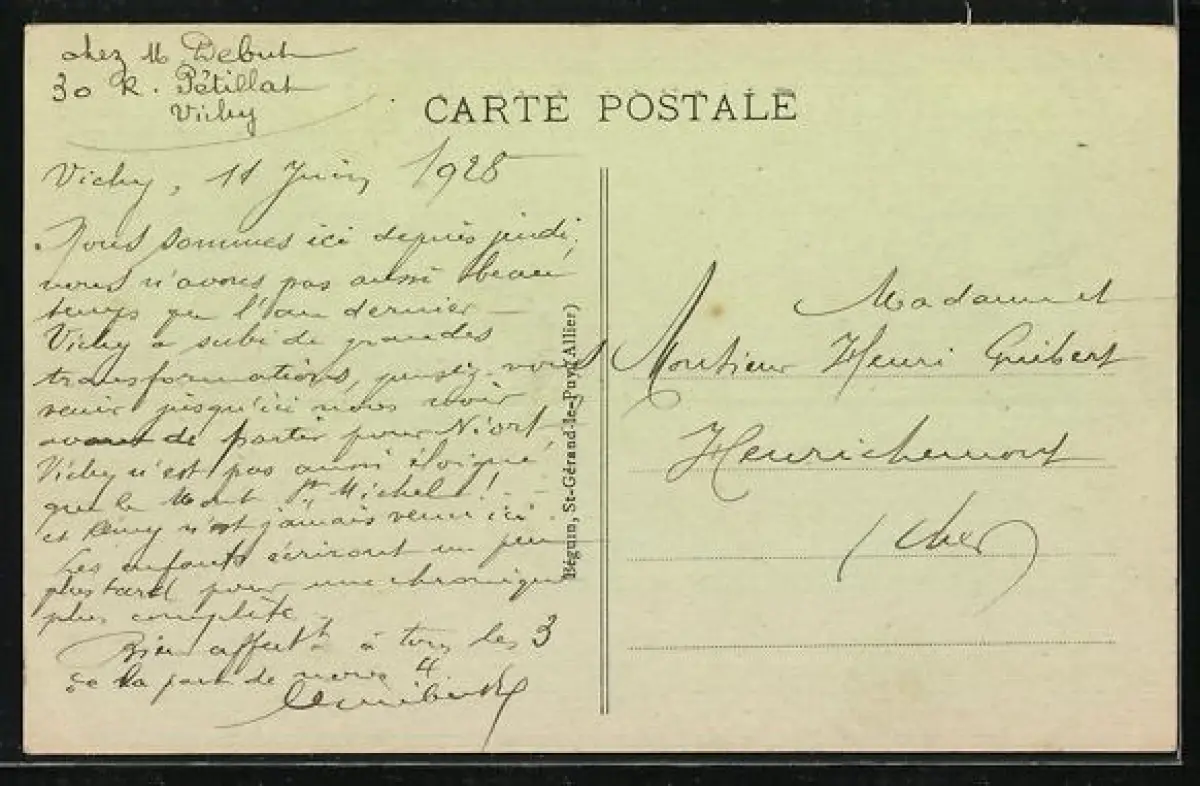 chez M Debut
30 R. Pétillat
Vichy
CARTE POSTALE
Vichy, 11 Juin 1928
Nous sommes ici depuis jeudi,
nous n'avons pas aussi beau
temps que l'an dernier –
Vichy a subi de grandes
transformations, vous
venir jusqu'ici nous voir
avant de partir pour Niort,
Vichy n'est pas aussi éloigné
que le Mont St Michel !
et n'est jamais venu ici.
Les enfants écriront un peu
plus tard pour une chronique
plus complète –
Bien affectt à tous les 3
de la part de nous 4
Guibert
Béguin, St-Gérand-le-Puy (Allier)
Madame et
Monsieur Henri Guibert
Henrichemont
(Cher)